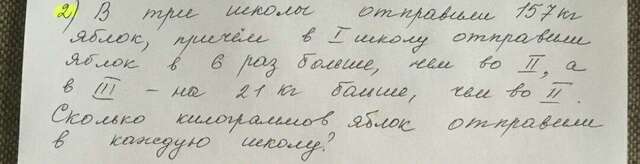 2) В три школы отправили 157 кг
яблок, причём в I школу отправили
яблок в 6 раз больше, чем во II, а
в III - на 21 кг больше, чем во II.
Сколько килограммов яблок отправили
в каждую школу?